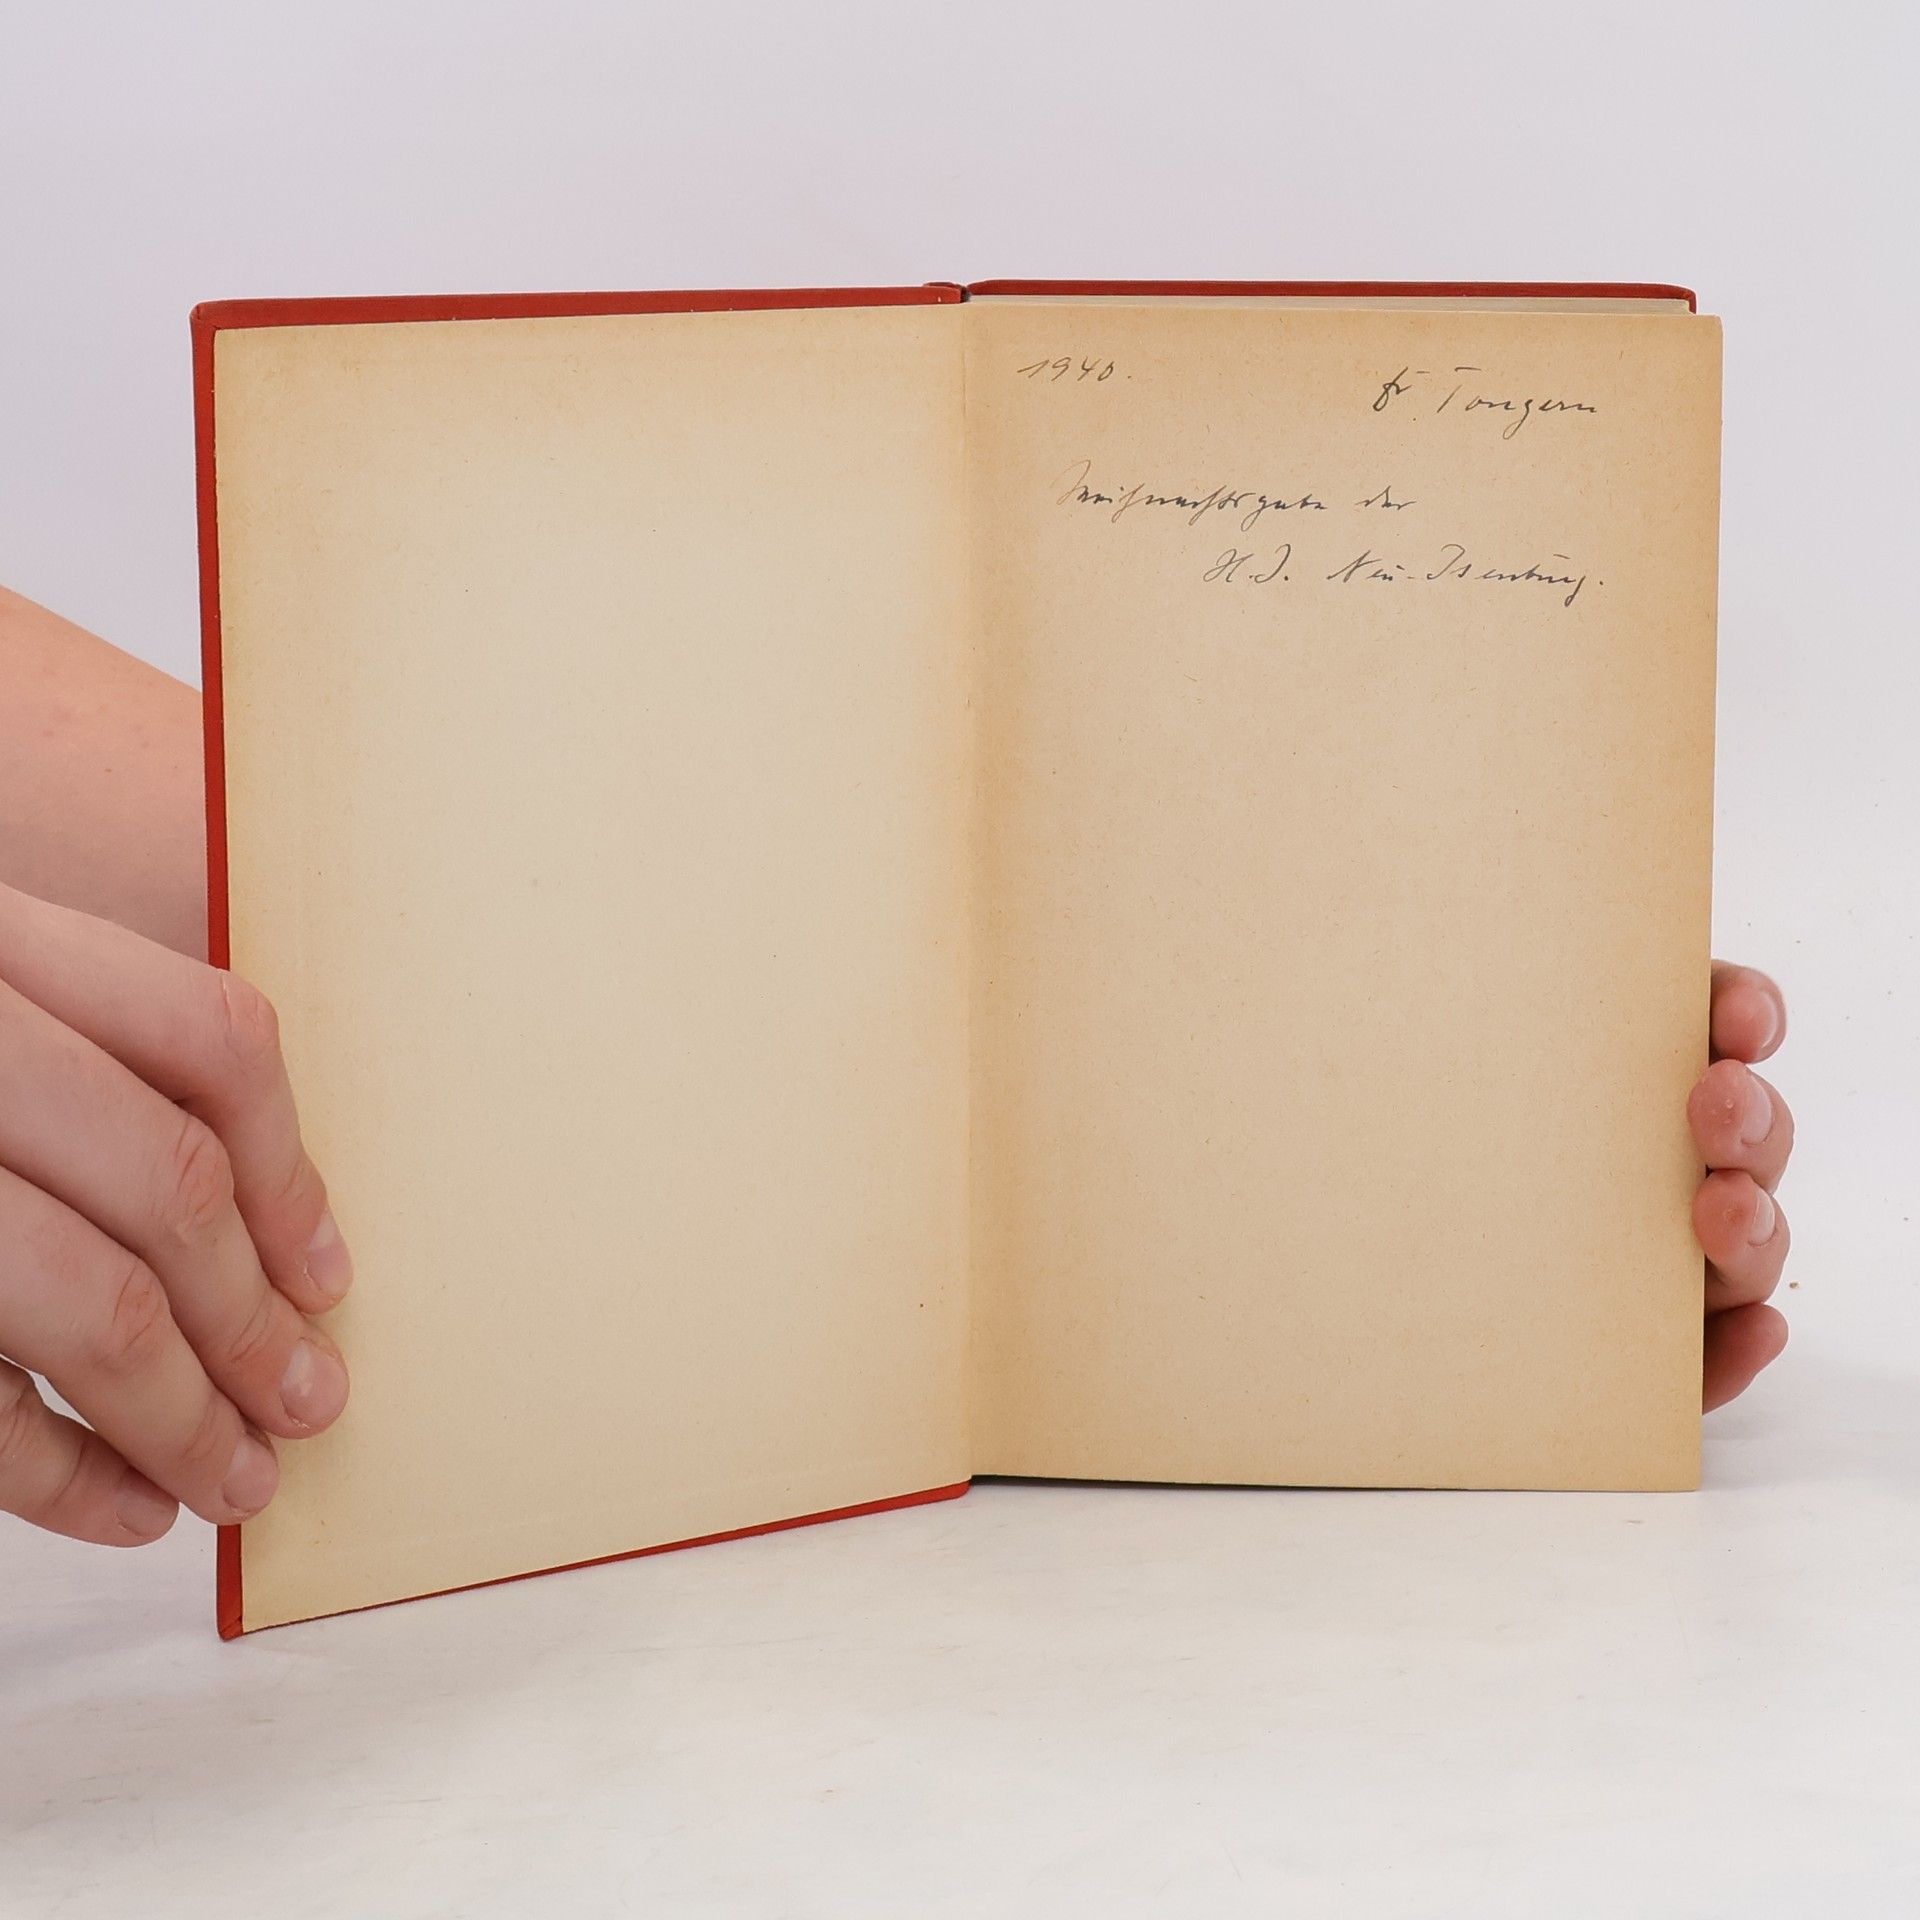 1940.
fr Tongern
Weihnachtsgabe der
H.J. Neu-Isenburg.